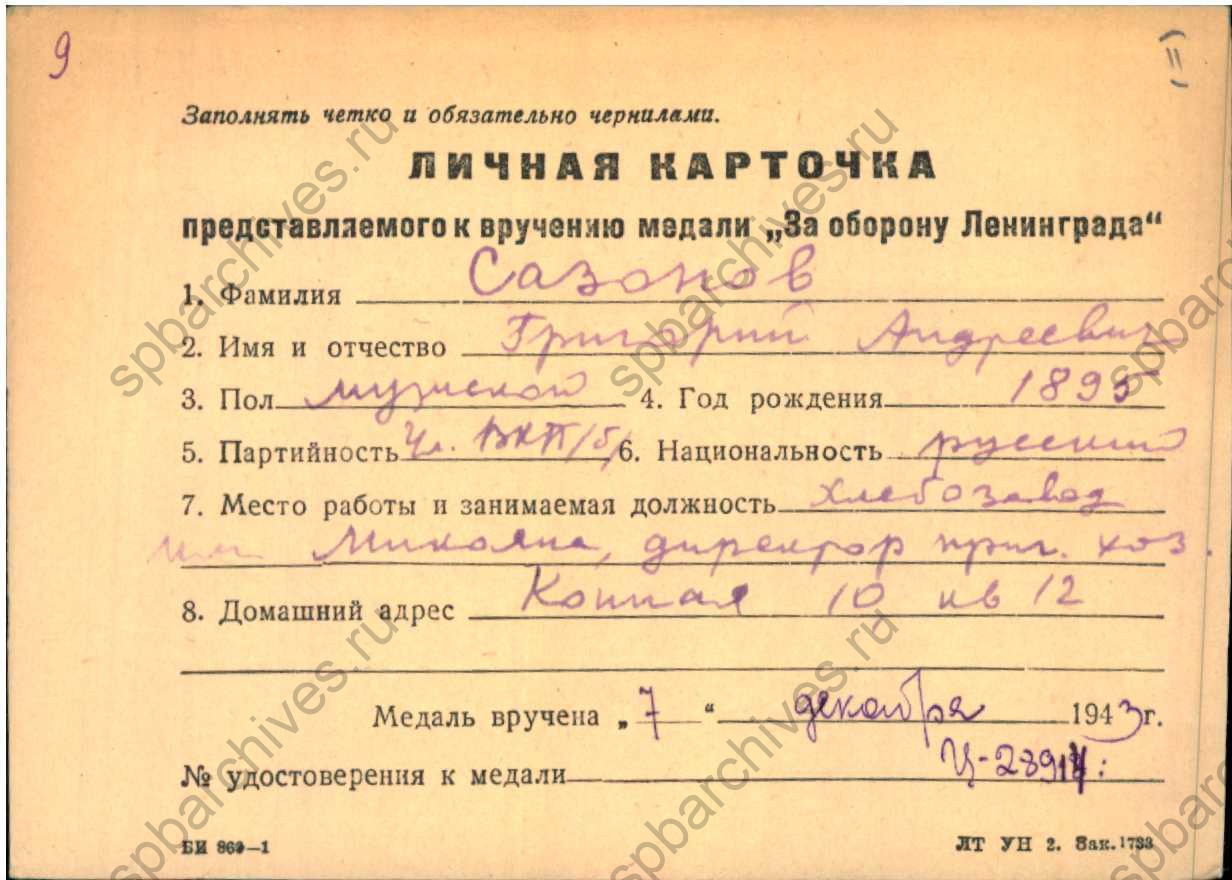 9
(=)
Заполнять четко и обязательно чернилами.
ЛИЧНАЯ КАРТОЧКА
представляемого к вручению медали „За оборону Ленинграда“
1. Фамилия Сазонов
2. Имя и отчество Григорий Андреевич
3. Пол мужской 4. Год рождения 1895
5. Партийность Чл. ВКП/б/ 6. Национальность русский
7. Место работы и занимаемая должность хлебозавод
им Микояна, директор приг. хоз.
8. Домашний адрес Конная 10 кв 12
Медаль вручена „7“ декабря 1943г.
№ удостоверения к медали
БИ 869—1 ЛТ УН 2. Зак. 1733
spbarchives.ru
spbarchives.ru
spbarchives.ru
spbarchives.ru
spbarchives.ru
spbarchives.ru